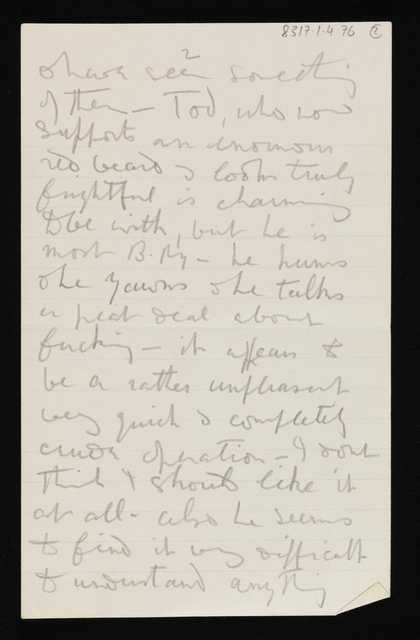 8317.1.4.76 ②
2
& have seen something
of them — Tod, who now
supports an enormous
red beard & looks truly
frightful is charming
to be with, but he is
most B. Ry — he hums
& he yawns & he talks
a great deal about
fucking — it appears to
be a rather unpleasant
very quick & completely
crude operation — I dont
think I should like it
at all — also he seems
to find it very difficult
to understand anything